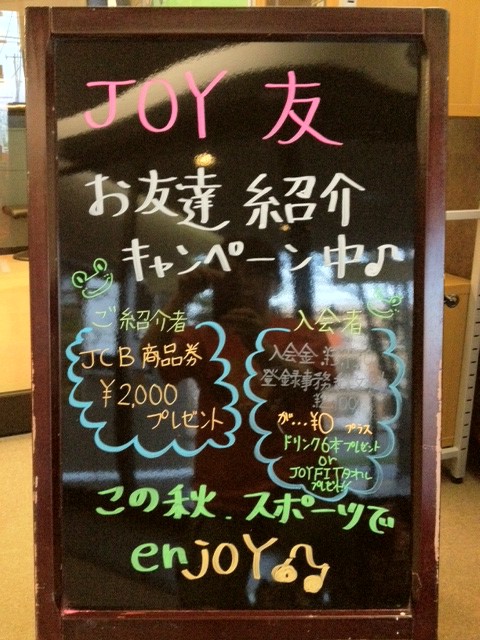 JOY 友
お友達 紹介
キャンペーン中♪
ご紹介者
JCB商品券
¥2,000
プレゼント
入会者
入会金
登録事務
が…¥0 プラス
ドリンク6本プレゼント
or
JOYFITタオル
プレゼント
この秋、スポーツで
enJOY♫